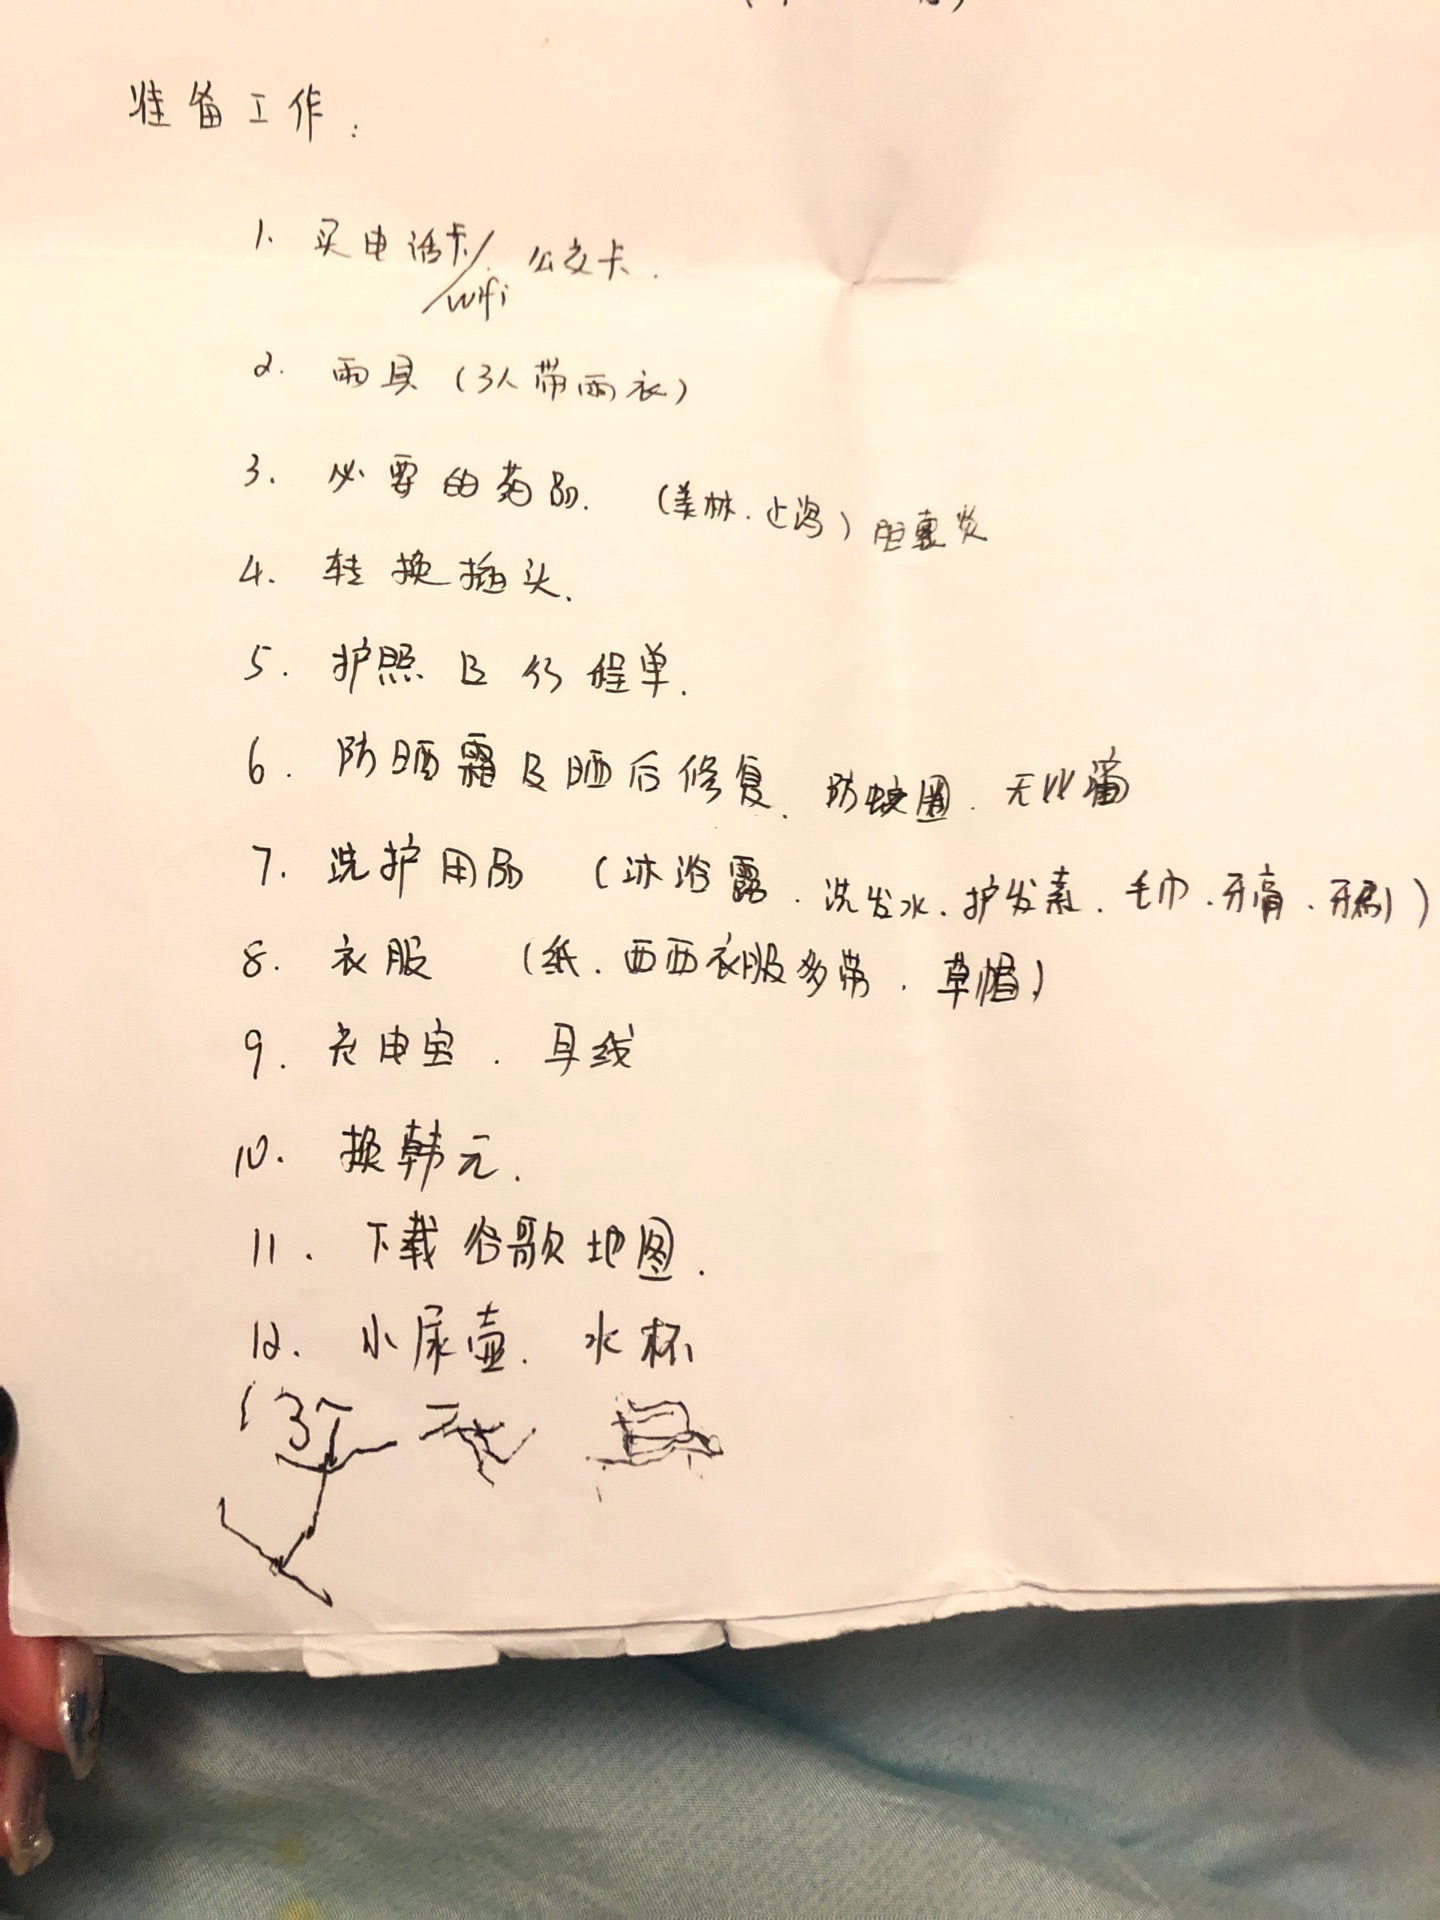 准备工作:
1. 买电话卡/wifi. 公交卡.
2. 雨具(3人带雨衣)
3. 必要的药品. (美林.止泻)胆囊炎
4. 转换插头.
5. 护照及行程单.
6. 防晒霜及晒后修复. 防蚊圈. 无比滴
7. 洗护用品 (沐浴露.洗发水.护发素.毛巾.牙膏.牙刷)
8. 衣服 (纸.西西衣服多带.草帽)
9. 充电宝. 耳线
10. 换韩元.
11. 下载谷歌地图.
12. 小尿壶. 水杯
13